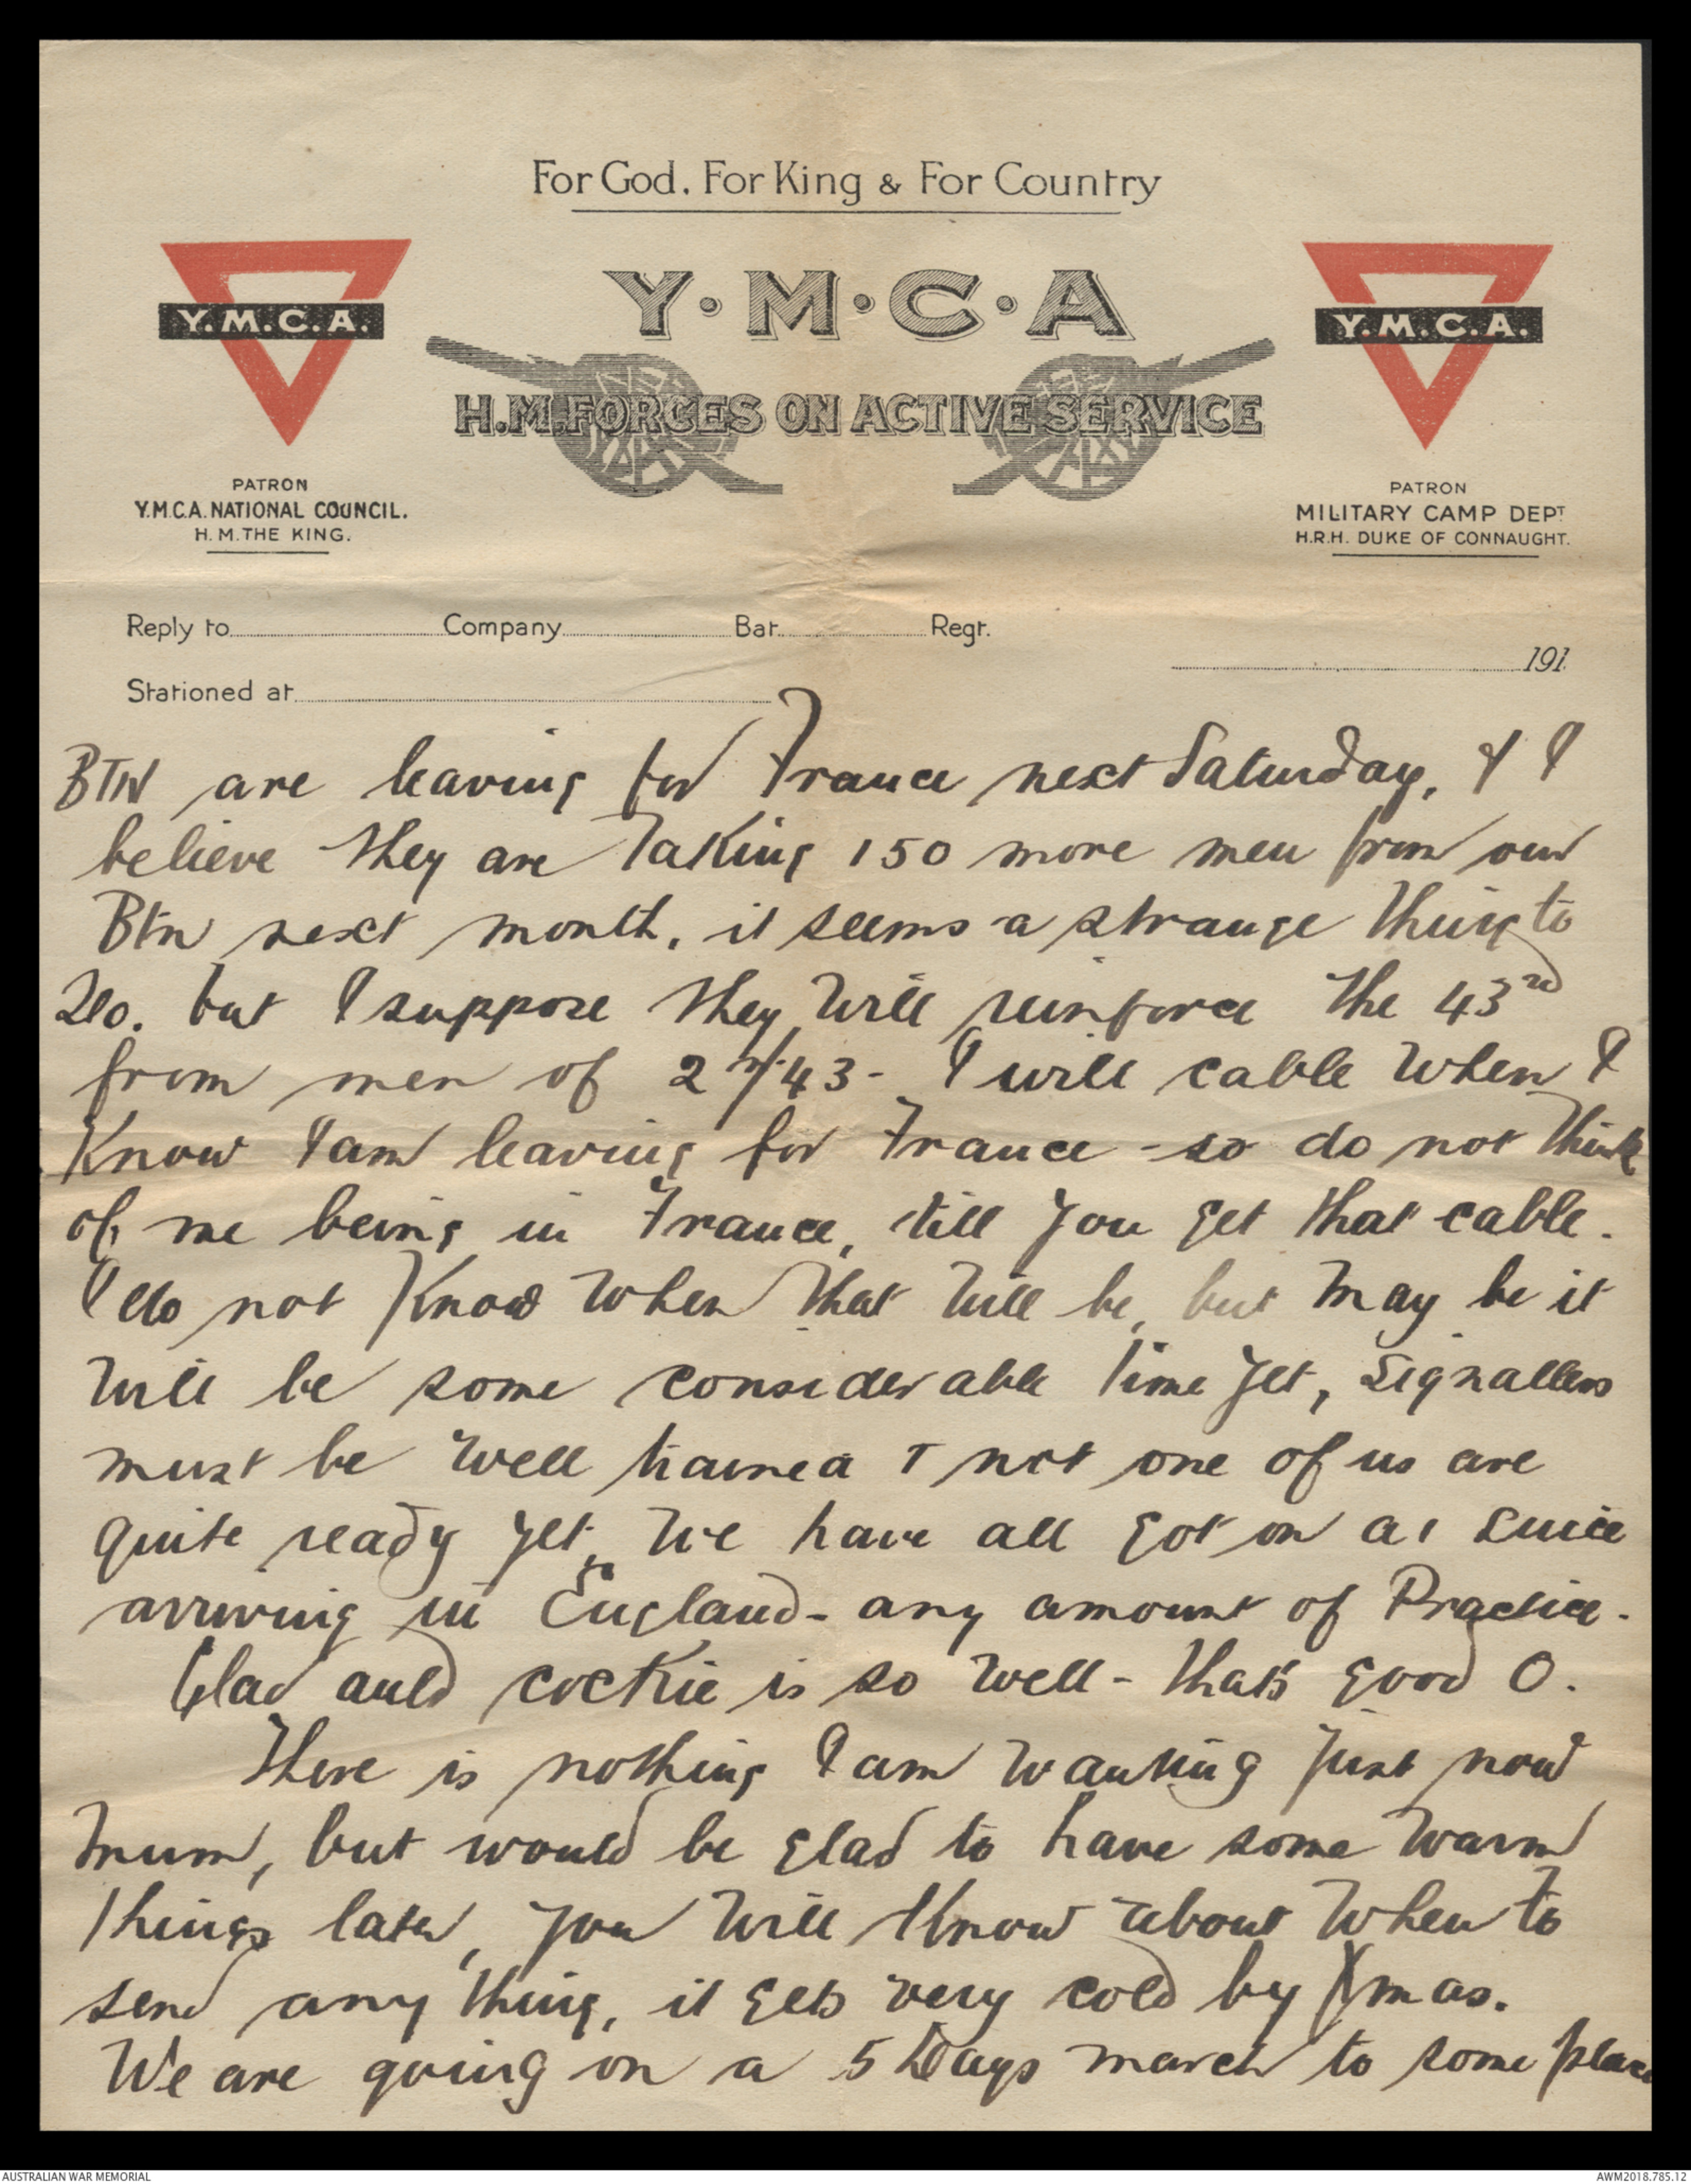 For God, For King & For Country
Y.M.C.A.
Y·M·C·A
Y.M.C.A.
H.M. FORCES ON ACTIVE SERVICE
PATRON
Y.M.C.A. NATIONAL COUNCIL.
H.M. THE KING.
PATRON
MILITARY CAMP DEPT
H.R.H. DUKE OF CONNAUGHT.
Reply to Company Bat. Regt.
191
Stationed at
BTN are leaving for France next Saturday, & I
believe they are taking 150 more men from our
Btn next month, it seems a strange thing to
do. but I suppose they will reinforce the 43rd
from men of 2nd/43 - I will cable when I
Know I am leaving for France - so do not think
of me being in France, till you get that cable.
I do not Know when that will be, but may be it
will be some considerable time yet, signallers
must be well trained & not one of us are
quite ready yet, we have all got on a1 since
arriving in England - any amount of Practice.
Glad auld cockie is so well - that's good O.
There is nothing I am wanting just now
Mum, but would be glad to have some warm
things later, you will know about when to
send any thing, it gets very cold by Xmas.
We are going on a 5 Days march to some place
AUSTRALIAN WAR MEMORIAL
AWM2018.785.12